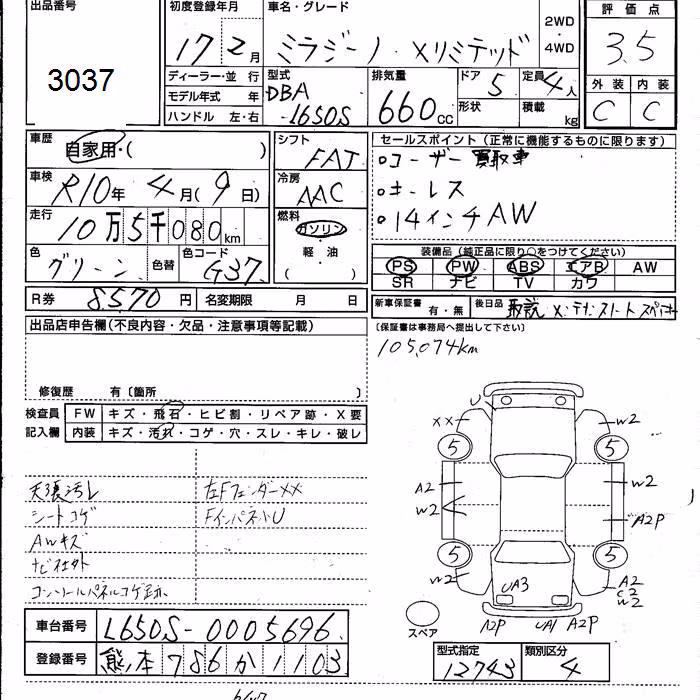 出品番号
3037
初度登録年月
17 2月
車名・グレード
ミラジーノ・Xリミテッド
2WD
4WD
評価点
3.5
外装 内装
C C
ディーラー・並行
モデル年式 年
ハンドル 左・右
型式
DBA
-L650S
排気量
660cc
ドア
5
形状
定員
4人
積載
kg
車歴
自家用・( )
車検
R10年 4月(9日)
走行
10万5千080km
色
グリーン
色替
色コード
G37
R券 8570円
名変期限 月 日
シフト
FAT
冷房
AAC
燃料
ガソリン
軽油
( )
セールスポイント(正常に機能するものに限ります)
○ユーザー買取車
○キーレス
○14インチAW
装備品(純正品に限り○をつけてください)
PS PW ABS エアB AW
SR ナビ TV カワ
新車保証書
有・無
後日品
取説 メンテナンスノート スペキー
(保証書は事務局へ提出して下さい)
105,074km
出品店申告欄(不良内容・欠品・注意事項等記載)
修復歴 有〔箇所 〕
検査員
記入欄
FW キズ・飛石・ヒビ割・リペア跡・X要
内装 キズ・汚れ・コゲ・穴・スレ・キレ・破レ
天張汚レ
左Fフェンダー××
シートコゲ
FインパネトU
AWキズ
ナビ社外
コンソールパネルコゲ跡
U
××
W2
5
5
A2
W2
W2
A2P
5
5
W2
UA3
A2
C2
W2
A2P
UA1
A2P
スペア
車台番号 L650S-0005696
登録番号 熊本786か1103
型式指定
12743
類別区分
4